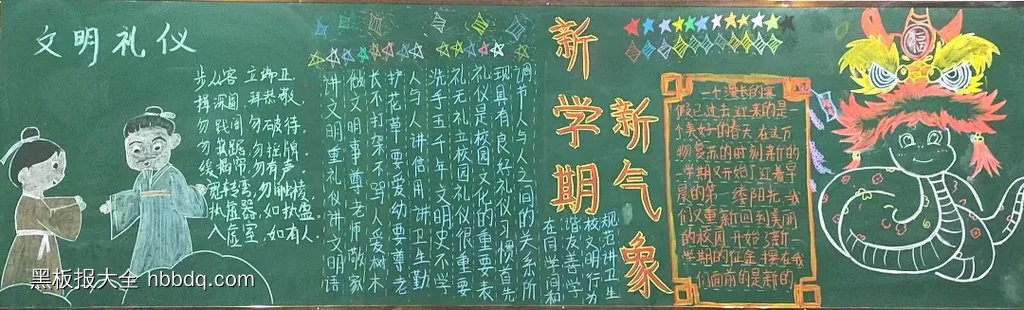 文明礼仪
步从容 立端正
揖深圆 拜恭敬
勿践阈 勿破待
勿箕踞 勿摇牌
缓揭帘 勿有声
宽转弯 勿触棱
执虚器 如执盈
入虚室 如有人
讲文明重礼仪讲文明语
做文明事尊老师敬家
长不打架不骂人爱树木
护花草要爱幼要尊老
人与人讲信用讲卫生勤
洗手五千年文明史不学
礼无礼立校园礼仪很重要
礼仪是校园文化的重要表
现具有良好礼仪习惯首先
调节人与人之间的关系所
在同学间和
谐友善学
校文明行为
规范讲卫生
新学期
新气象
一个漫长的寒
假已过去迎来的是一
个美好的春天在这万
物复苏的时刻新的
一学期又开始了迎着早
晨的第一缕阳光我
们又重新回到美丽
的校园开始了新一
学期的征途摆在我
们面前的是新的
福
黑板报大全 hbbdq.com